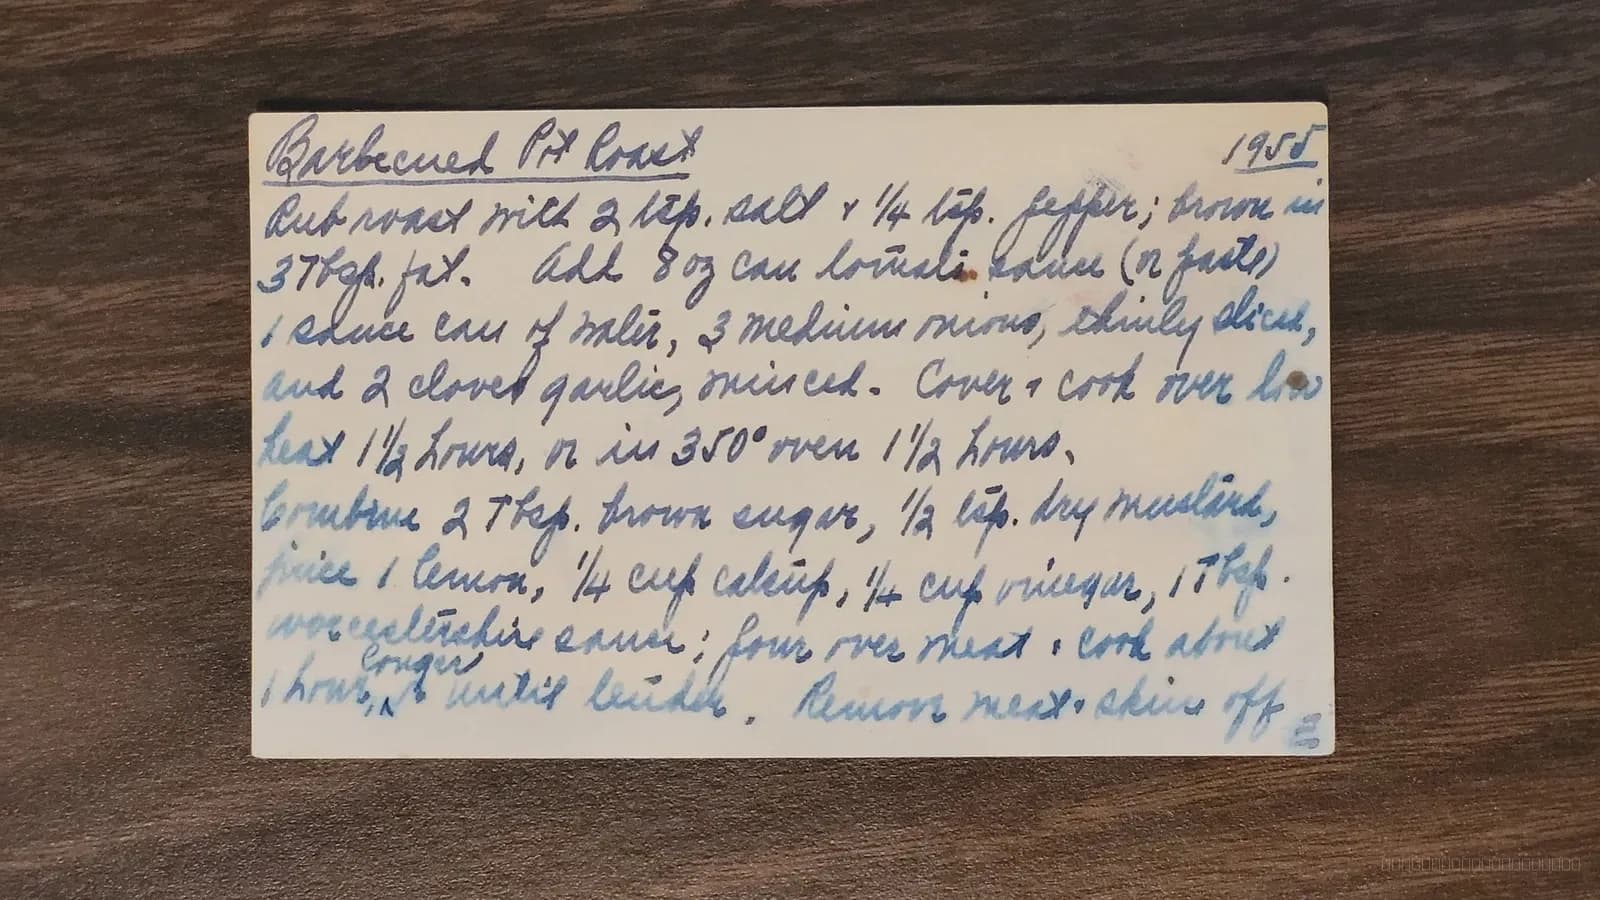 Barbecued Pot Roast 1955
Rub roast with 2 tsp. salt + 1/4 tsp. pepper; brown in
3 Tbsp. fat. Add 8 oz can tomato sauce (or paste)
1 sauce can of water, 3 medium onions, thinly sliced,
and 2 cloves garlic, minced. Cover + cook over low
heat 1 1/2 hours, or in 350° oven 1 1/2 hours.
Combine 2 Tbsp. brown sugar, 1/2 tsp. dry mustard,
juice 1 lemon, 1/4 cup catsup, 1/4 cup vinegar, 1 Tbsp.
worcestershire sauce; pour over meat + cook about
longer
1 hour, or until tender. Remove meat + skim off